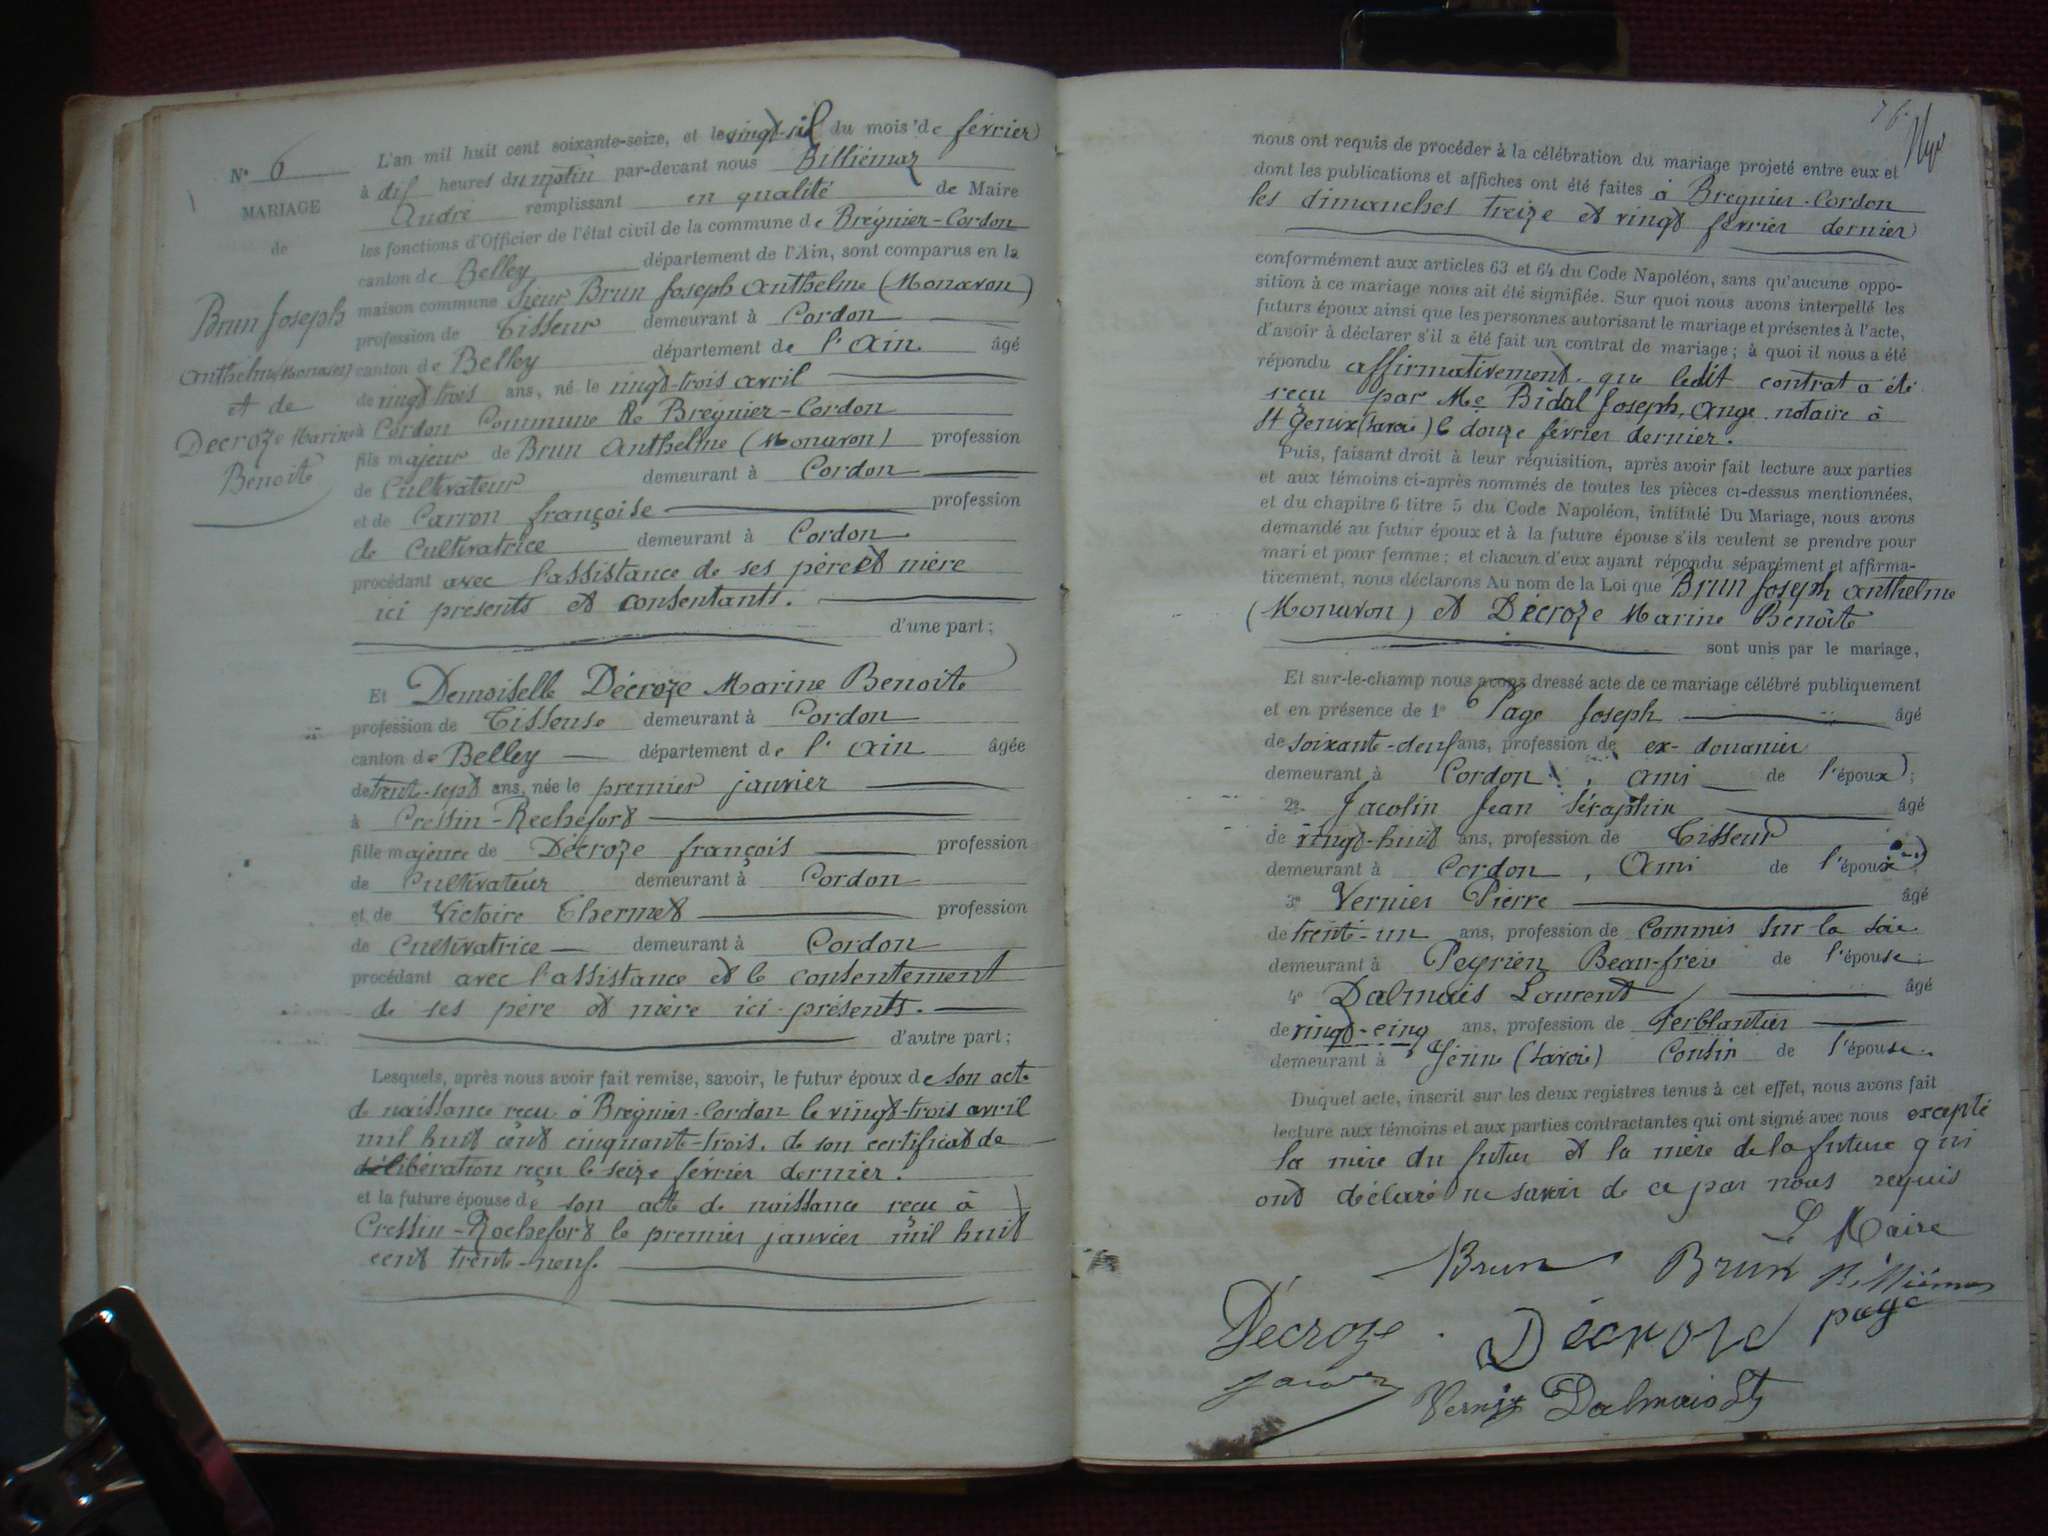 N° 6
MARIAGE
de
Brun Joseph
Anthelme (Monavon)
et de
Decroze Marine
Benoite
L'an mil huit cent soixante-seize, et le vingt-six du mois de février
à dix heures du matin par-devant nous Billiémaz
André remplissant en qualité de Maire
les fonctions d'Officier de l'état civil de la commune de Brégnier-Cordon
canton de Belley département de l'Ain, sont comparus en la
maison commune Sieur Brun Joseph Anthelme (Monavon)
profession de Tisseur demeurant à Cordon
canton de Belley département de l'Ain âgé
de vingt trois ans, né le vingt-trois avril
à Cordon Commune de Brégnier-Cordon
fils majeur de Brun Anthelme (Monavon) profession
de Cultivateur demeurant à Cordon
et de Carron françoise profession
de Cultivatrice demeurant à Cordon
procédant avec l'assistance de ses père et mère
ici présents et consentants.
d'une part;
Et Demoiselle Décroze Marine Benoite
profession de Tisseuse demeurant à Cordon
canton de Belley département de l'Ain âgée
de trente-sept ans, née le premier janvier
à Cressin-Rochefort
fille majeure de Décroze françois profession
de Cultivateur demeurant à Cordon
et de Victoire Thermet profession
de Cultivatrice demeurant à Cordon
procédant avec l'assistance et le consentement
de ses père et mère ici présents.
d'autre part;
Lesquels, après nous avoir fait remise, savoir, le futur époux de son acte
de naissance reçu à Brégnier-Cordon le vingt-trois avril
mil huit cent cinquante-trois, de son certificat de
délibération reçu le seize février dernier.
et la future épouse de son acte de naissance reçu à
Cressin-Rochefort le premier janvier mil huit
cent trente-neuf.
76
nous ont requis de procéder à la célébration du mariage projeté entre eux et
dont les publications et affiches ont été faites à Brégnier-Cordon
les dimanches treize et vingt février dernier
conformément aux articles 63 et 64 du Code Napoléon, sans qu'aucune oppo-
sition à ce mariage nous ait été signifiée. Sur quoi nous avons interpellé les
futurs époux ainsi que les personnes autorisant le mariage et présentes à l'acte,
d'avoir à déclarer s'il a été fait un contrat de mariage; à quoi il nous a été
répondu affirmativement, que ledit contrat a été
reçu par Me Bidal Joseph, Ange notaire à
St Genix (Savoie) le douze février dernier.
Puis, faisant droit à leur réquisition, après avoir fait lecture aux parties
et aux témoins ci-après nommés de toutes les pièces ci-dessus mentionnées,
et du chapitre 6 titre 5 du Code Napoléon, intitulé Du Mariage, nous avons
demandé au futur époux et à la future épouse s'ils veulent se prendre pour
mari et pour femme; et chacun d'eux ayant répondu séparément et affirma-
tivement, nous déclarons Au nom de la Loi que Brun Joseph Anthelme
(Monavon) et Décroze Marine Benoite
sont unis par le mariage,
Et sur-le-champ nous avons dressé acte de ce mariage célébré publiquement
et en présence de 1° Page Joseph âgé
de soixante-deux ans, profession de ex-douanier
demeurant à Cordon, ami de l'époux;
2° Jacolin Jean Séraphin âgé
de vingt-huit ans, profession de Tisseur
demeurant à Cordon, Ami de l'époux
3° Vernier Pierre âgé
de trente-un ans, profession de Commis sur la soie
demeurant à Peyrieu Beau-frère de l'épouse;
4° Dalmais Laurent âgé
de vingt-cinq ans, profession de Ferblantier
demeurant à Yenne (Savoie) Cousin de l'épouse.
Duquel acte, inscrit sur les deux registres tenus à cet effet, nous avons fait
lecture aux témoins et aux parties contractantes qui ont signé avec nous excepté
la mère du futur et la mère de la future qui
ont déclaré ne savoir de ce par nous requis
Le Maire
Brun Brun Billiémaz
Décroze Décroze page
Vernier Dalmais